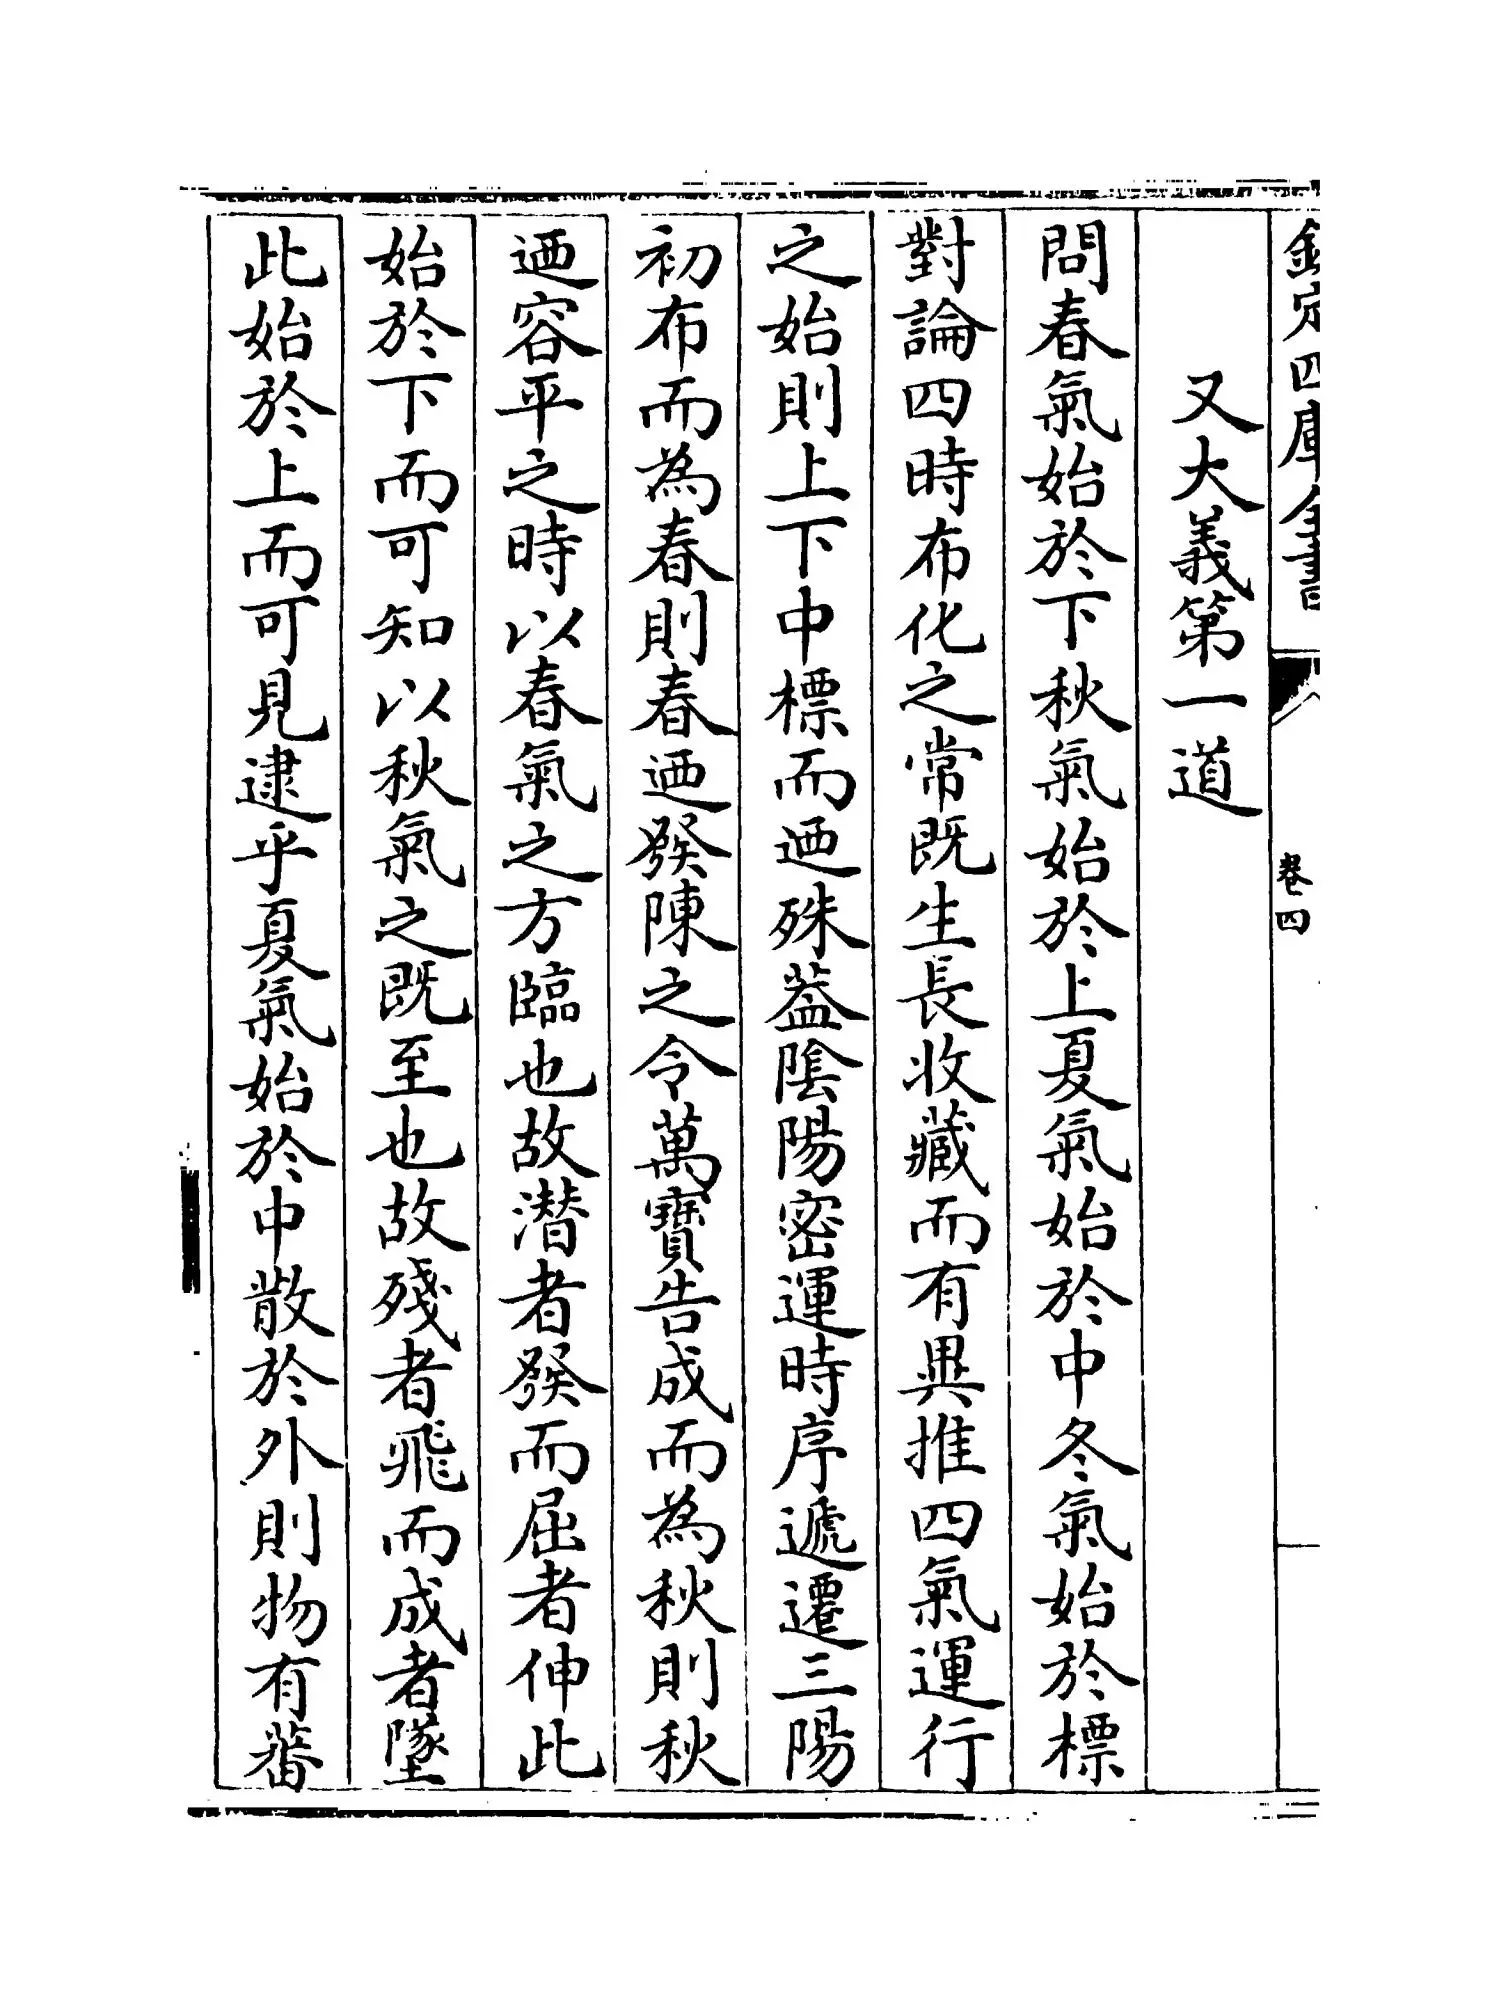 欽定四庫全書
卷四
又大義第一道
問春氣始於下秋氣始於上夏氣始於中冬氣始於標
對論四時布化之常既生長收藏而有異推四氣運行
之始則上下中標而迺殊葢隂陽密運時序遞遷三陽
初布而為春則春迺發陳之令萬寶告成而為秋則秋
迺容平之時以春氣之方臨也故潜者發而屈者伸此
始於下而可知以秋氣之既至也故殘者飛而成者墜
此始於上而可見逮乎夏氣始於中散於外則物有蕃